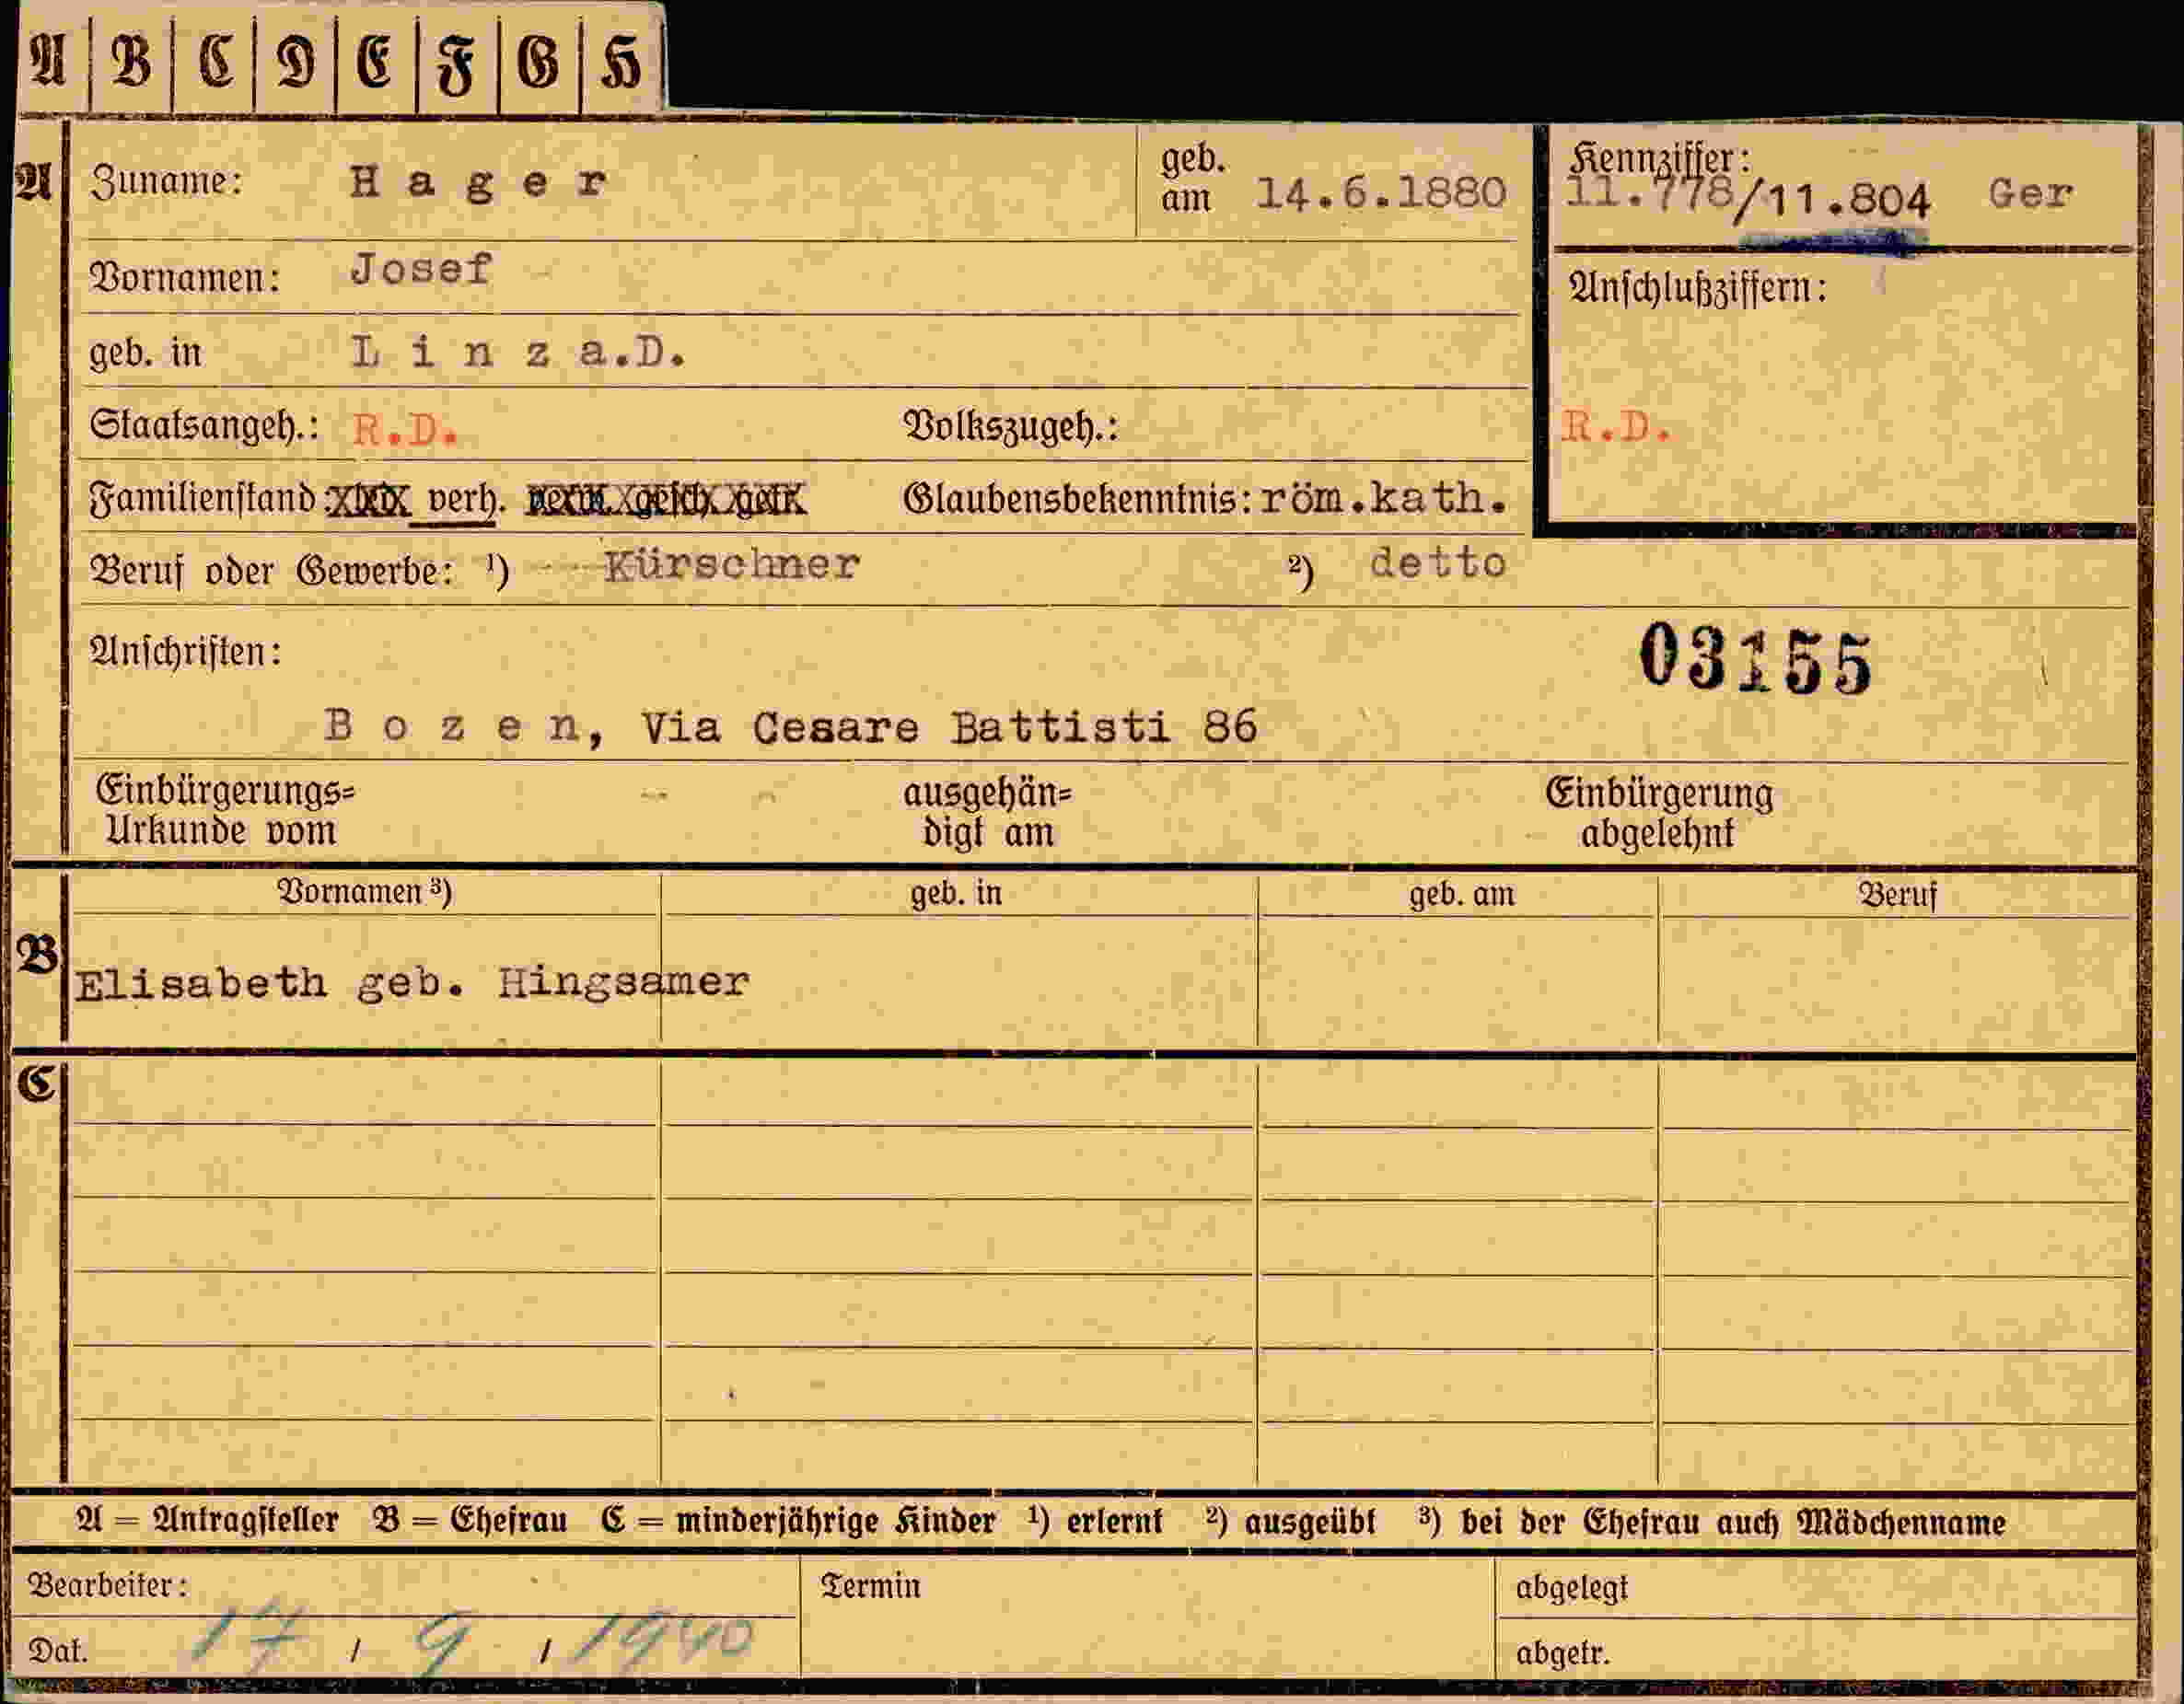 A B C D E F G H
A Zuname: Hager geb. am 14.6.1880 Kennziffer: 11.778/11.804 Ger
Vornamen: Josef Anschlußziffern:
geb. in Linz a.D.
Staatsangeh.: R.D. Volkszugeh.: R.D.
Familienstand: verh. Glaubensbekenntnis: röm.kath.
Beruf oder Gewerbe: ¹) Kürschner ²) detto
Anschriften: 03155
Bozen, Via Cesare Battisti 86
Einbürgerungs= ausgehän= Einbürgerung
Urkunde vom digt am abgelehnt
Vornamen ³) geb. in geb. am Beruf
B
Elisabeth geb. Hingsamer
C
A = Antragsteller B = Ehefrau C = minderjährige Kinder ¹) erlernt ²) ausgeübt ³) bei der Ehefrau auch Mädchenname
Bearbeiter: Termin abgelegt
Dat. 17 / 9 / 1940 abgetr.